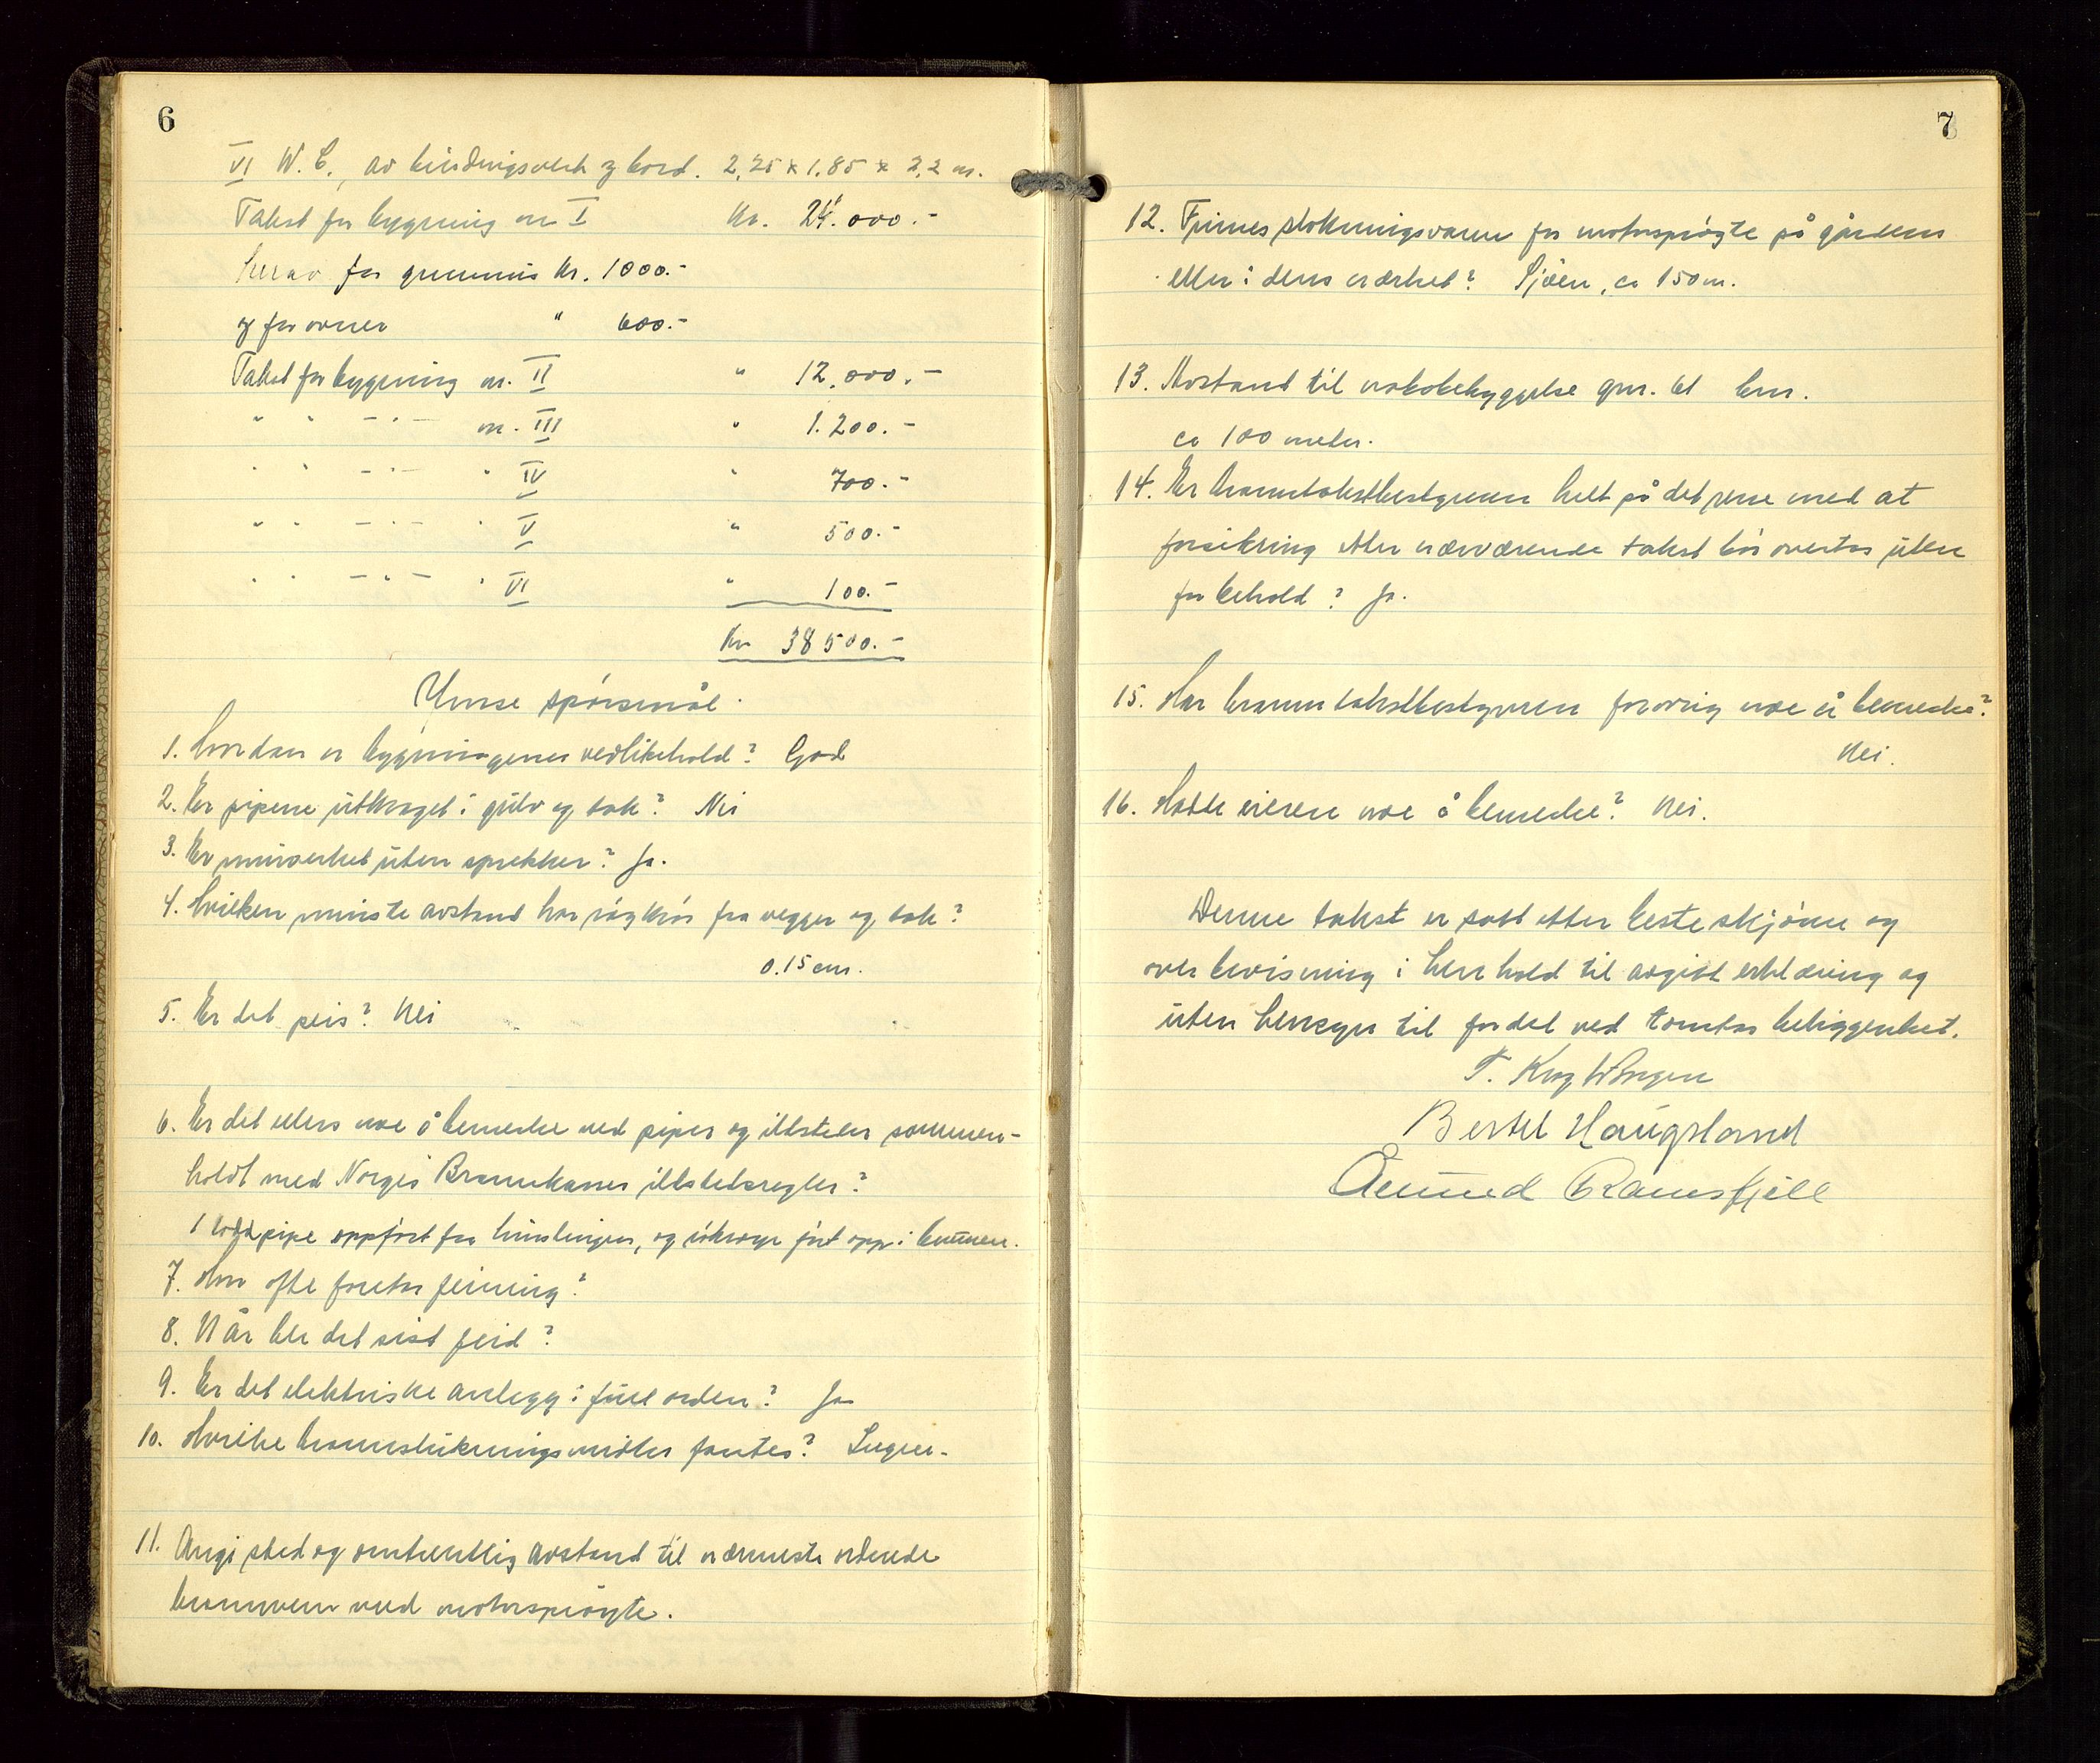 6
VI W. C., av bindingsverk og bord. 2,25 x 1,85 x 2,2 m.
Takst for bygning nr I Kr. 24.000.-
herav for grunnmur Kr. 1000.-
og for ovner " 600.-
Takst for bygning nr. II " 12.000.-
" " -"- nr. III " 1.200.-
" " -"- " IV " 700.-
" " -"- " V " 500.-
" " -"- " VI " 100.-
Kr 38500.-
Ymse spørsmål.
1. Hvordan er bygningenes vedlikehold? God
2. Er pipene utkraget i gulv og tak? Nei
3. Er murverket uten sprekker? Ja.
4. Hvilken minste avstand har røykrør fra vegger og tak?
0.15 cm.
5. Er det peis? Nei
6. Er det ellers noe å bemerke ved piper og ildsteder sammen-
holdt med Norges Brannkasses ildstedsregler?
1 pipe oppført fra himlingen, og føt opp i
7. Hvor ofte foretas feining?
8. Når ble det sist feid?
9. Er det elektriske anlegg i full orden? Ja
10. Hvilke brannslukningsmidler fantes? Ingen.
11. Angi sted og omtrentlig avstand til nærmeste ordnede
brannvern med motorsprøyte.
7
12. Finnes slokningsvann for motorsprøyte på gårdens
eller i dens nærhet? Sjøen, ca 150 m.
13. Avstand til nabobebyggelse gnr. 61 bnr.
ca 100 meter.
14. Er branntakstbestyreren helt på det rene med at
forsikring etter nærværende takst bør overtas uten
forbehold? Ja.
15. Har branntakstbestyreren forøvrig noe å bemerke?
Nei.
16. Hadde eieren noe å bemerke? Nei.
Denne takst er satt etter beste skjønn og
overbevisning i henhold til avgitt erklæring og
uten hensyn til fordel ved tomtas beliggenhet.
T. Krog
Bertel Haugsland
Åmund Ramsfjell